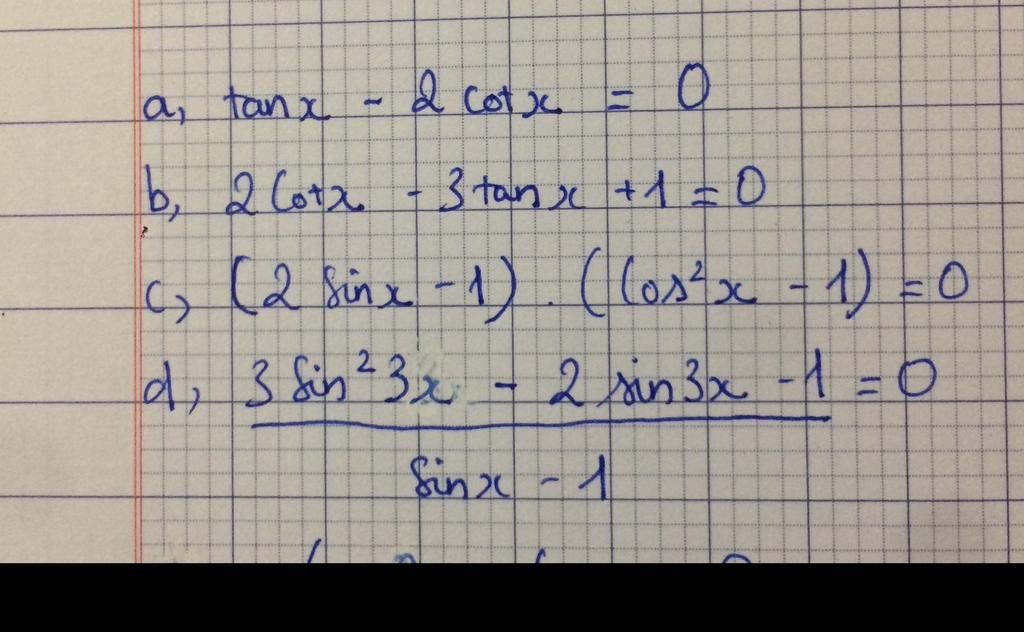 a, tanx - 2 cotx = 0
b, 2 Cotx - 3 tanx + 1 = 0
c, (2 sinx - 1) . (Cos²x - 1) = 0
d, 3 sin²3x - 2 sin3x - 1 = 0
sinx - 1